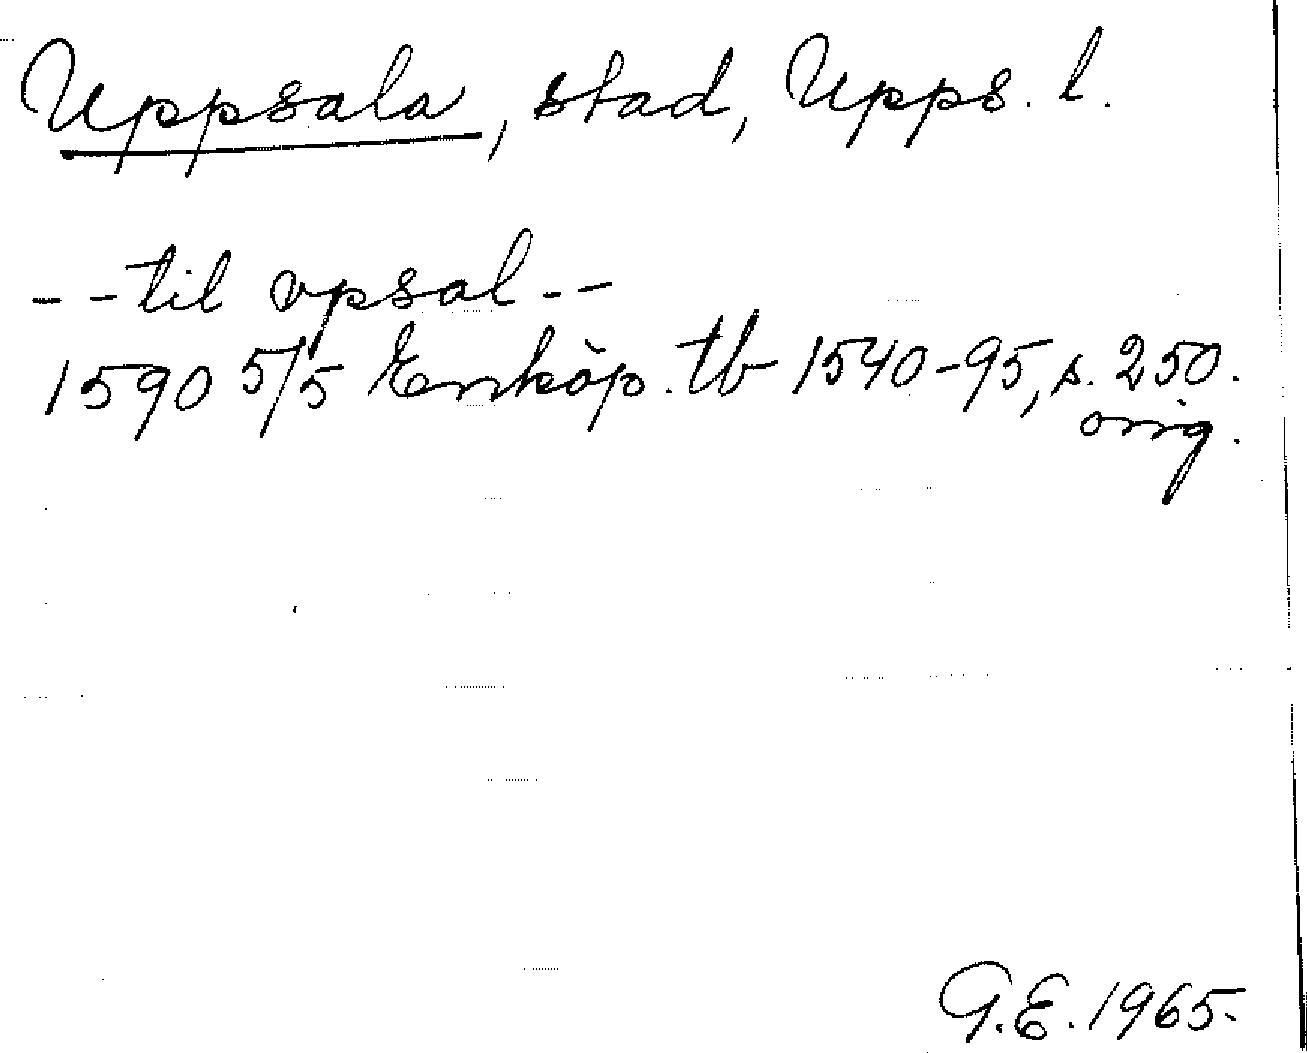 Uppsala, stad, Upps. l.
- - til vpsal - -
1590 5/5 Enköp. tb 1540-95, s. 250.
orig.
G.E. 1965.